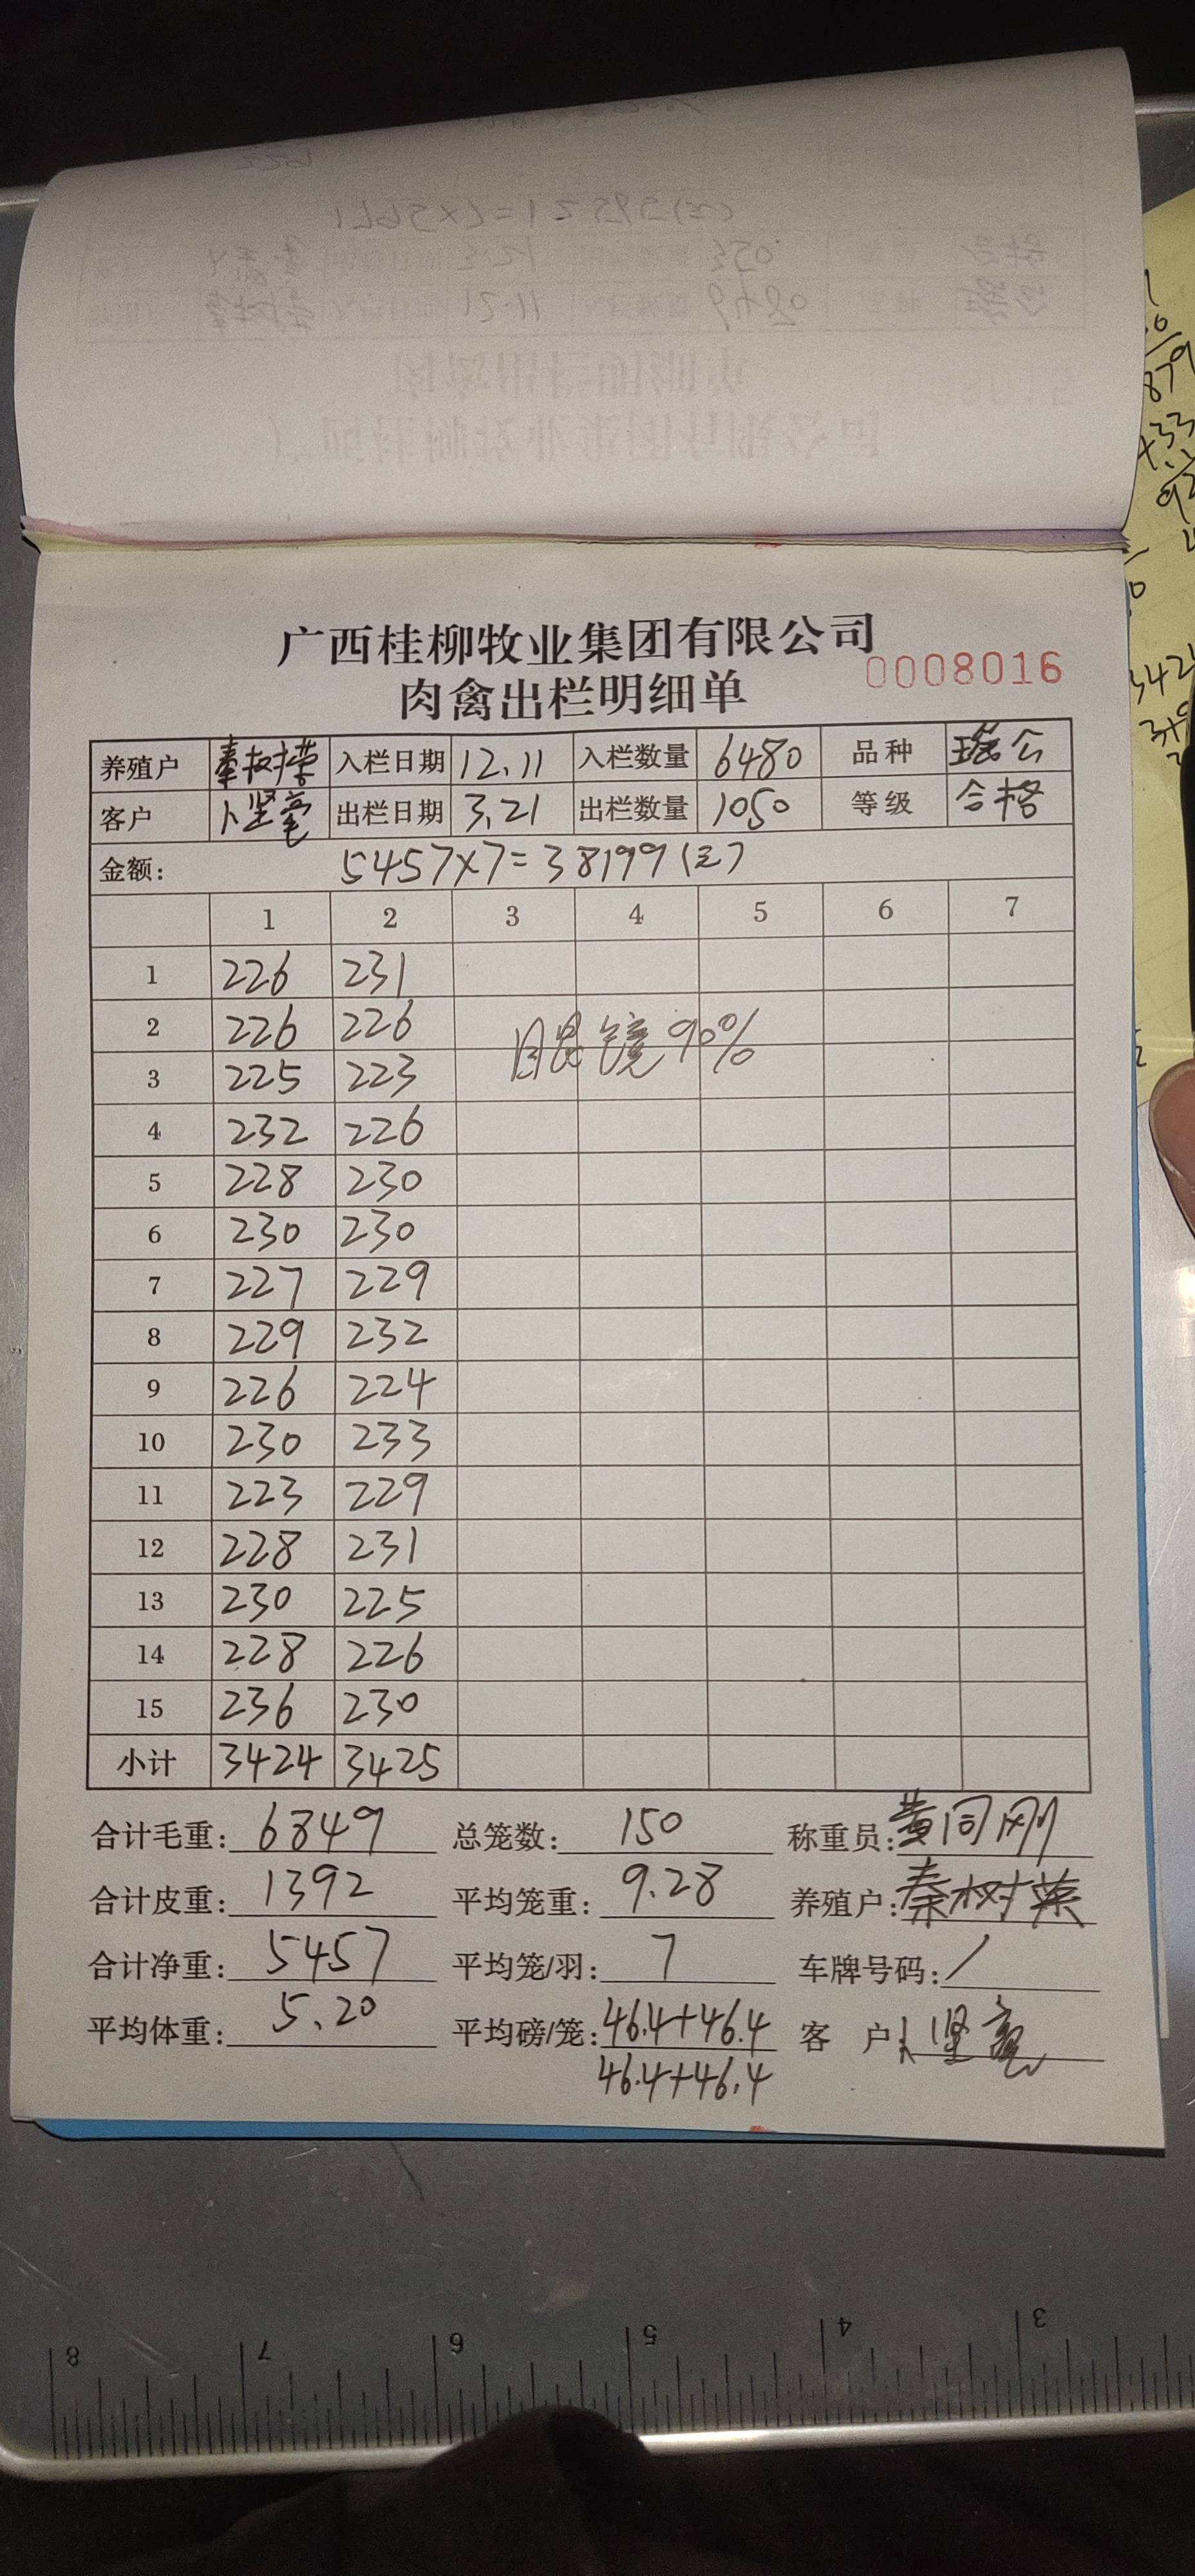 广西桂柳牧业集团有限公司
肉禽出栏明细单 0008016
养殖户 秦树荣 入栏日期 12.11 入栏数量 6480 品种 瑶公
客户 卜坚亮 出栏日期 3.21 出栏数量 1050 等级 合格
金额: 5457×7=38199(元)
1 2 3 4 5 6 7
1 226 231
2 226 226
眼镜90%
3 225 223
4 232 226
5 228 230
6 230 230
7 227 229
8 229 232
9 226 224
10 230 233
11 223 229
12 228 231
13 230 225
14 228 226
15 236 230
小计 3424 3425
合计毛重: 6849 总笼数: 150 称重员: 黄同刚
合计皮重: 1392 平均笼重: 9.28 养殖户: 秦树荣
合计净重: 5457 平均笼/羽: 7 车牌号码: /
平均体重: 5.20 平均磅/笼: 46.4+46.4 客 户: 卜坚亮
46.4+46.4
8 7 6 5 4 3